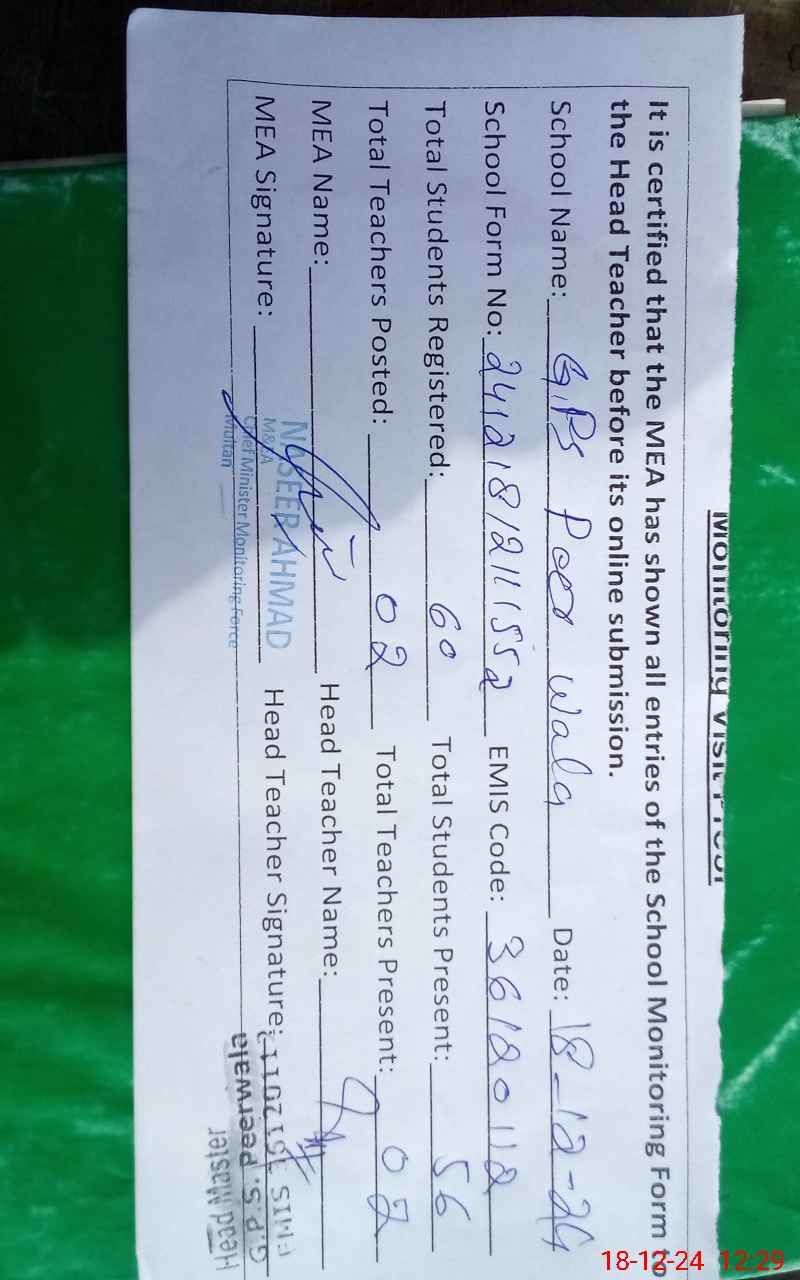 Monitoring Visit Proof
It is certified that the MEA has shown all entries of the School Monitoring Form to
the Head Teacher before its online submission.
School Name: G.PS Peer wala Date: 18-12-24
School Form No: 24121812111552 EMIS Code: 36120112
Total Students Registered: 60 Total Students Present: 56
Total Teachers Posted: 02 Total Teachers Present: 02
MEA Name: Head Teacher Name:
MEA Signature: Head Teacher Signature:
NASEER AHMAD
M&EA
Chief Minister Monitoring Force
Multan
Head Master
G.P.S. peerwala
EMIS
18-12-24 12:29